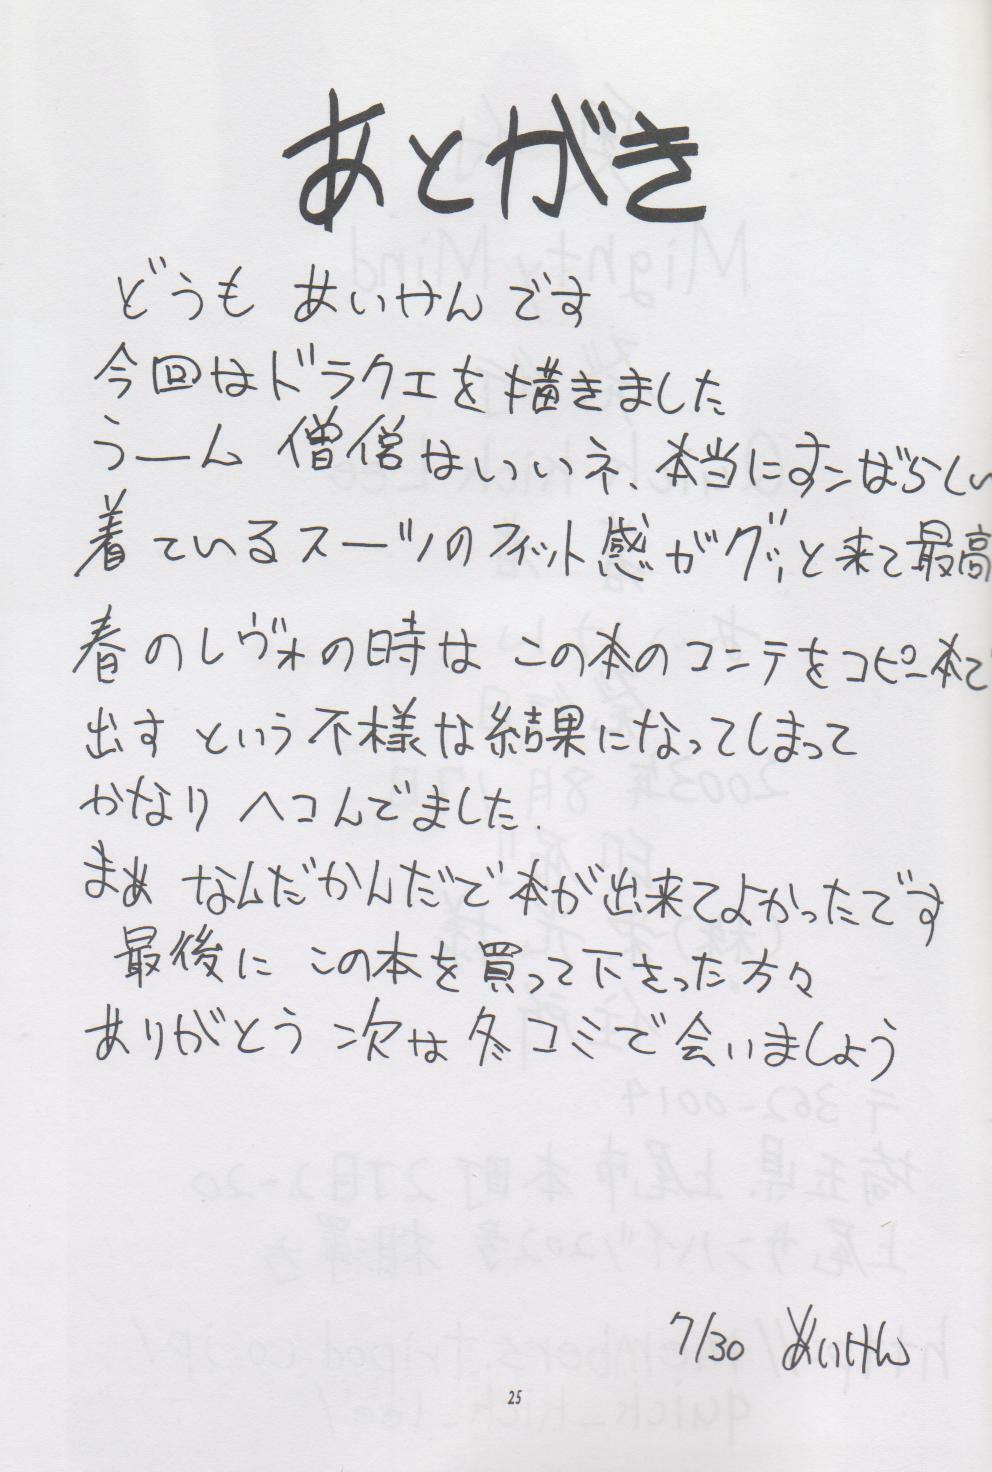 あとがき
どうも あいけんです
今回はドラクエを描きました
うーん 僧侶はいいネ、本当にすンばらしい
着ているスーツのフィット感がグッと来て最高
春のレヴォの時は この本のコンテをコピー本で
出す という不様な結果になってしまって
かなり ヘコんでました.
まぁ なんだかんだで本が出来てよかったです
最後に この本を買って下さった方々
ありがとう 次は冬コミで会いましょう
7/30 あいけん
25